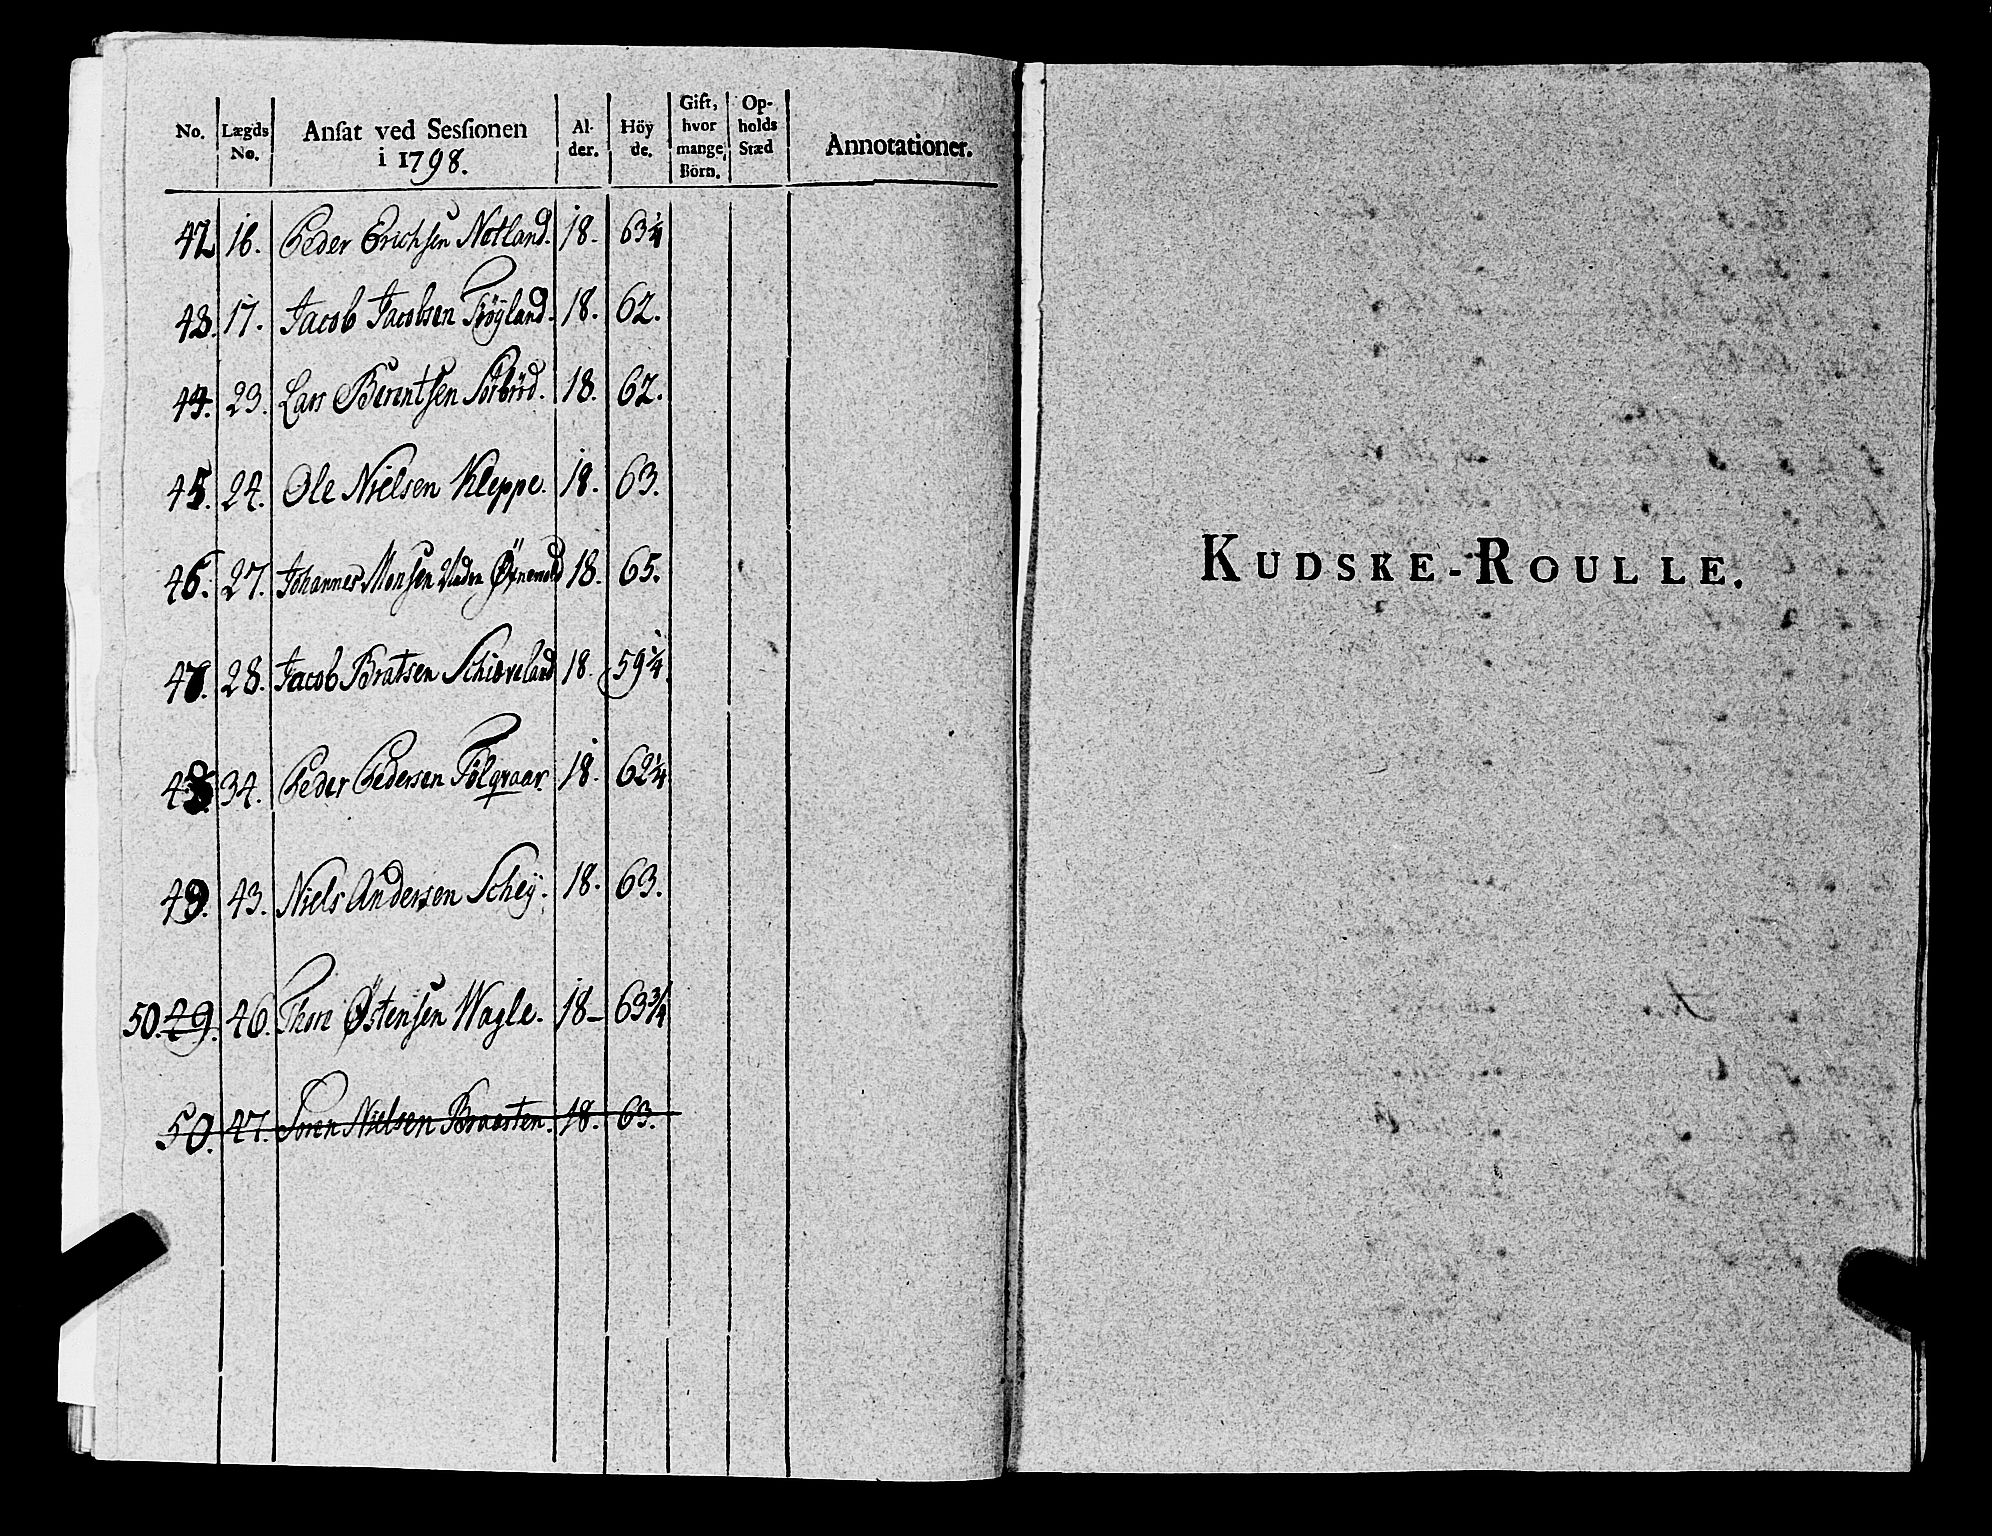 No. Lægds No. Ansat ved Sessionen i 1798. Al- der. Höy de. Gift, hvor mange Börn. Op- holds Stæd Annotationer.
42 16. Peder Erichsen Notland. 18. 63¼
43. 17. Jacob Jacobsen Frøyland. 18. 62.
44. 23. Lars Berentsen Sörbröd. 18. 62.
45. 24. Ole Nielsen Kleppe. 18. 63.
46. 27. Johannes Monsen 18. 65.
47. 28. Jacob Bratsen Schiæveland 18. 59¼
48. 34. Peder Pedersen 18. 62¼
49. 43. Niels Andersen Schey. 18. 63.
50. 49. 46. Thore Østensen Wagle. 18 - 63¾
50. 47. Soren Nielsen Braasten. 18. 63.
KUDSKE-ROULLE.